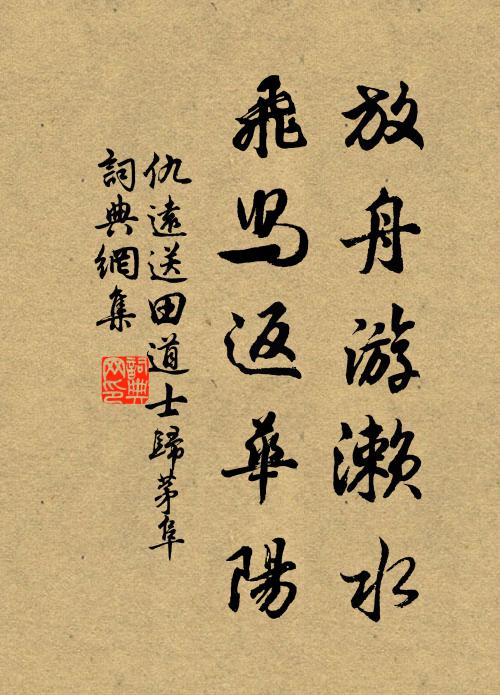 放舟游瀨水
飛舄返華陽
仇遠送田道士歸茅阜
詞典網集
詞典网印